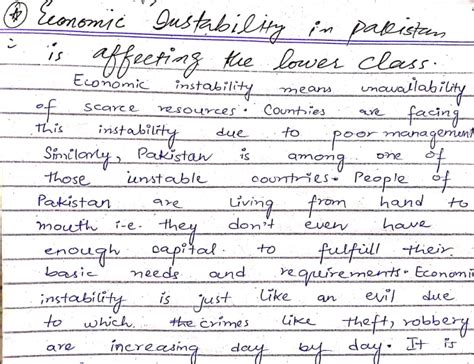 Economic Instability in Pakistan
is affecting the lower class.
Economic instability means unavailability
of scarce resources. Countries are facing
this instability due to poor management
Similarly, Pakistan is among one of
those unstable countries. People of
Pakistan are living from hand to
mouth i-e. they don't even have
enough capital to fulfull their
basic needs and requirements. Economi
instability is just like an evil due
to which the crimes like theft, robbery
are increasing day by day. It is